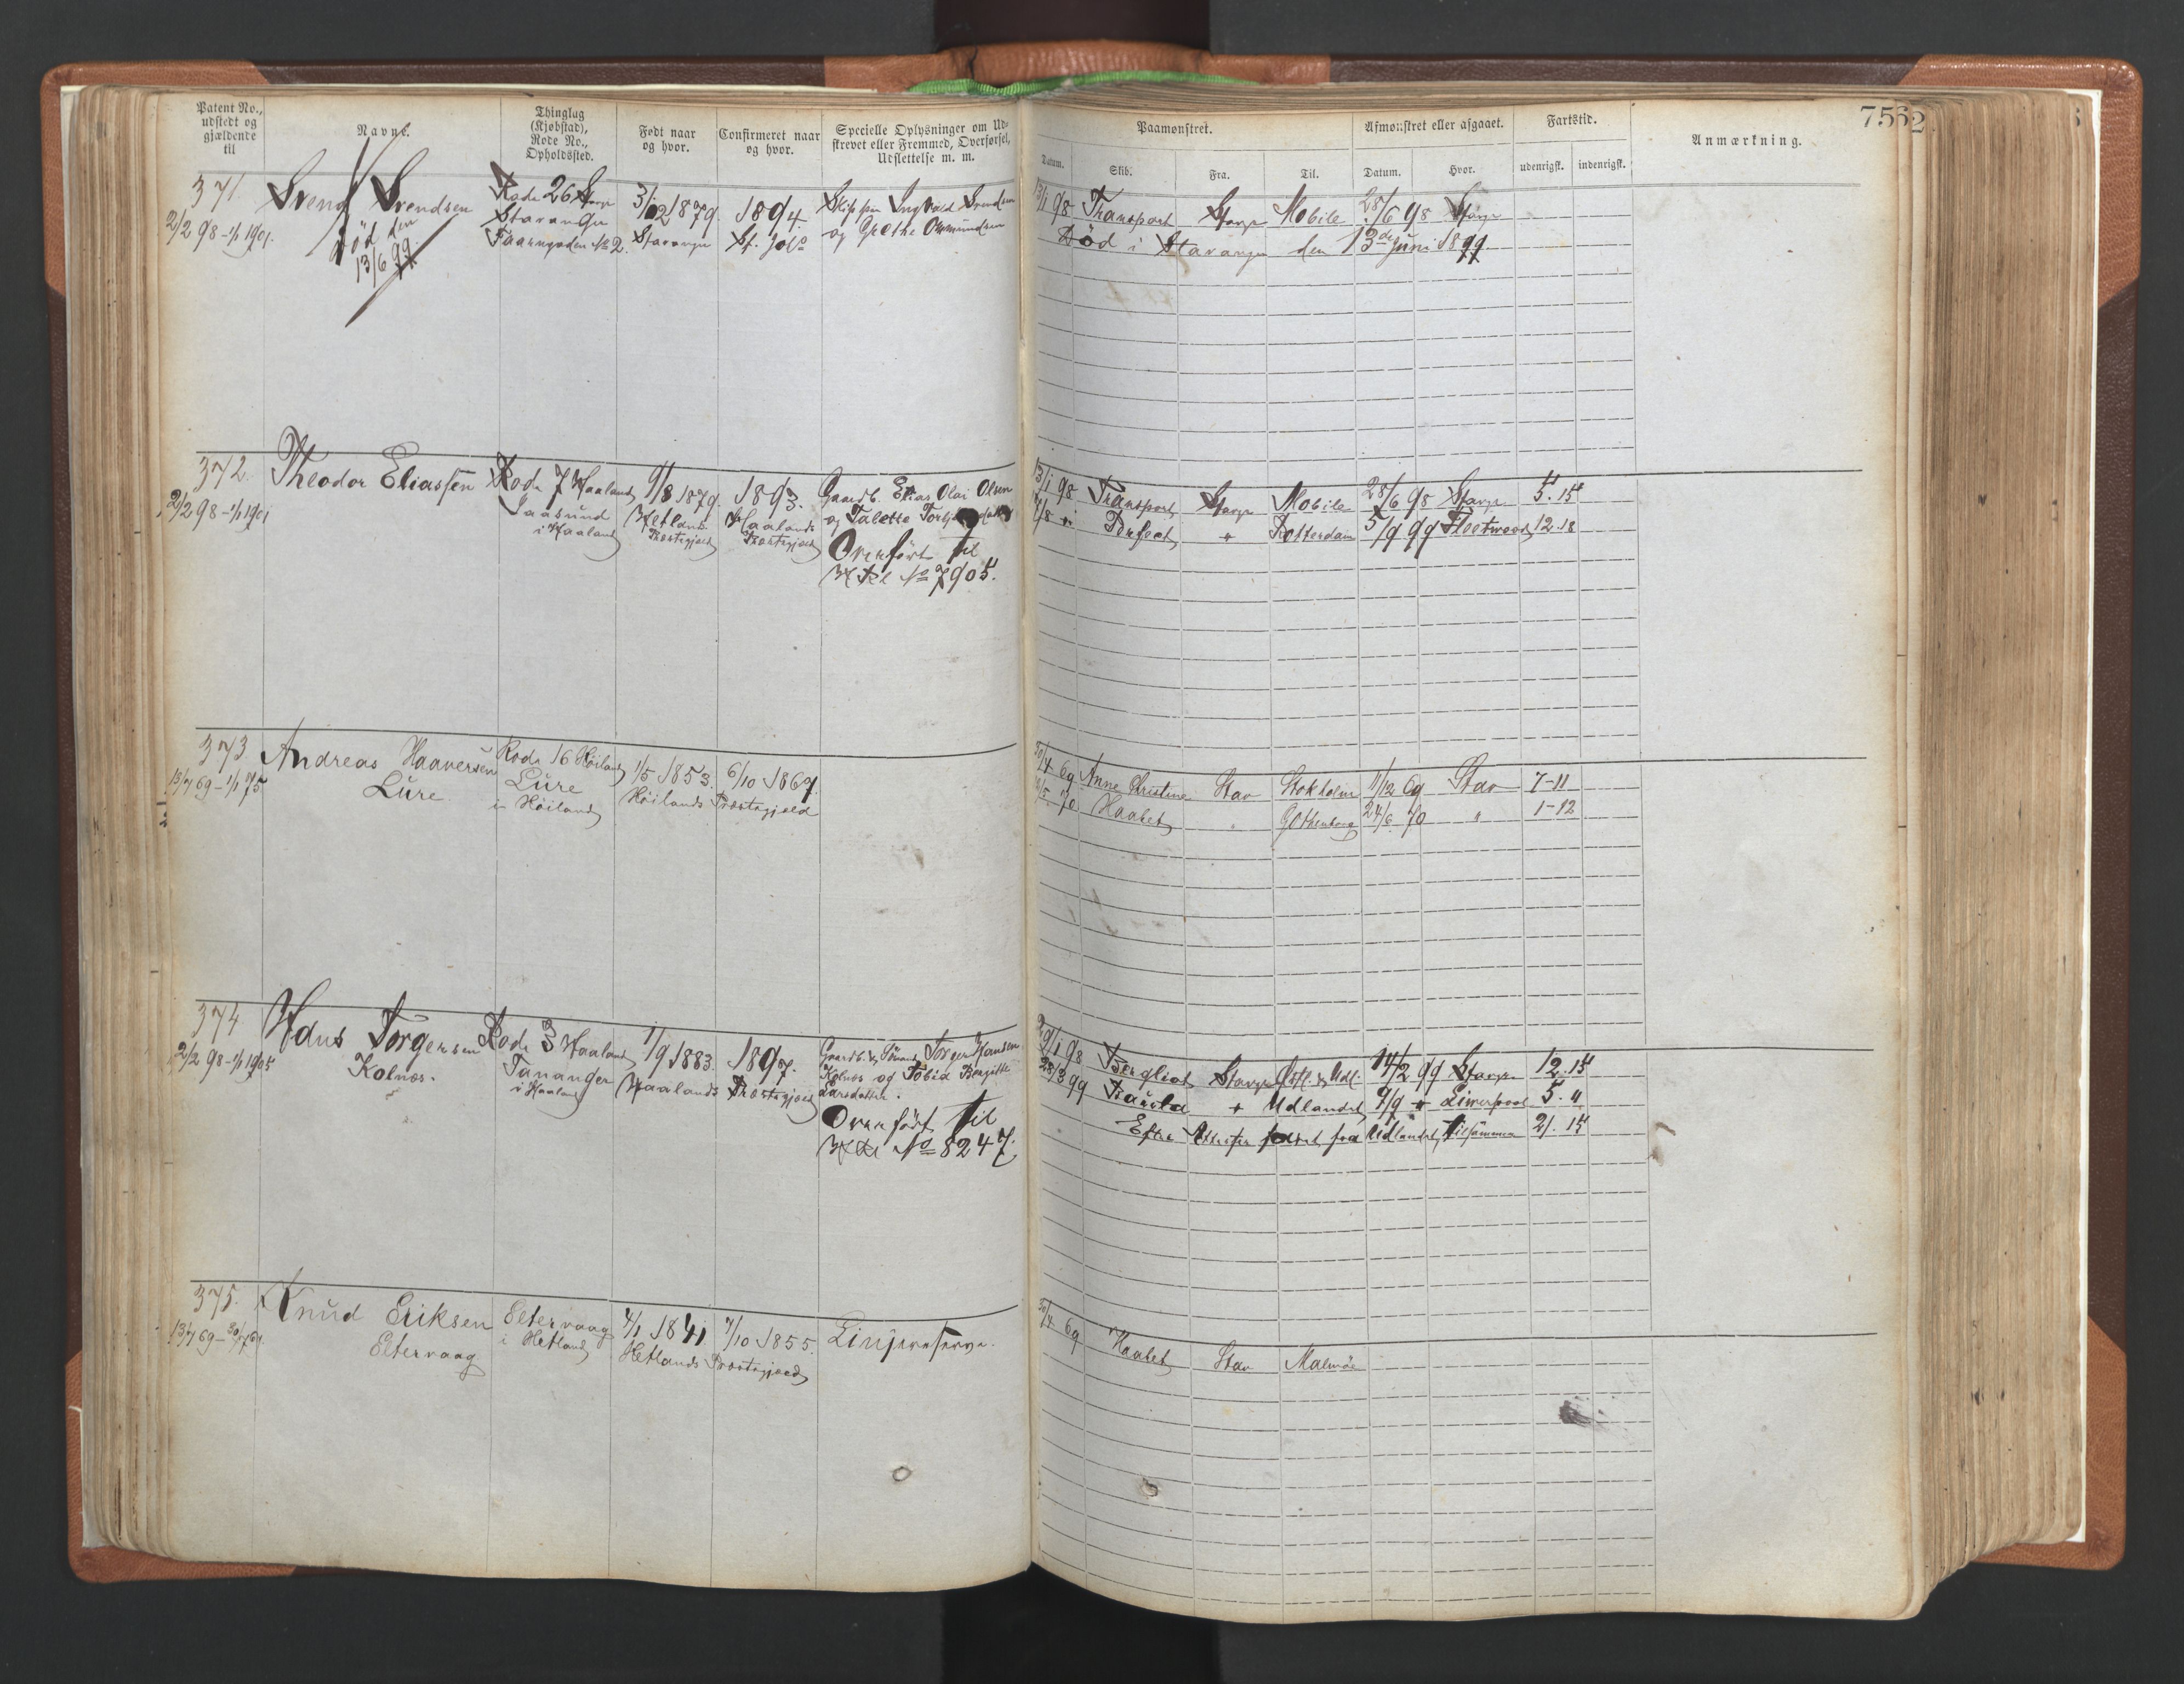 Patent No.,
udstedt og
gjældende
til
Navne.
Thinglag
(Kjøbstad),
Rode No.,
Opholdssted.
Født naar
og hvor.
Confirmeret naar
og hvor.
Specielle Oplysninger om Ud-
skrevet eller Fremmed, Overførsel,
Udslettelse m. m.
Paamønstret.
Afmønstret eller afgaaet.
Fartstid.
Anmærkning.
7562
Datum.
Skib.
Fra.
Til.
Datum.
Hvor.
udenrigsk.
indenrigsk.
371.
2/2 98 - 1/1 1901.
Svend Svendsen
Død den
13/6 99
Rode 26 Stavgr
Stavanger
No 2.
3/12 1879.
Stavanger
1894.
St.
Skipper Ingvald Svendsen
og Grethe Ommundsen
13/1 98 Transport Stavgr Mobile 28/6 98 Stavgr
Død i Stavanger den 13de Juni 1899.
372.
2/2 98 - 1/1 1901
Theodor Eliassen
Rode 7 Haaland
Jaasund
i Haaland
9/8 1879.
Hetlands
Præstegjæld
1893.
Haalands
Præstegjæld
Gaardb. Elias Olai Olsen
og Talette
Overført til
No 7905.
13/1 98 Transport Stavgr Mobile 28/6 98 Stavgr 5.15
Perfect " Rotterdam 5/9 99 Fleetwood 12.18
373
13/7 69 - 1/1 75
Andreas Haaversen
Lure
Rode 16 Höiland
Lure
i Höiland
1/5 1853.
6/10 1867.
Höilands Præstegjæld
30/4 69 Anne Christine Stav Stokholm 11/12 69 Stav 7-11
70 Haabet " Gothenborg 24/6 70 " 1-12
374
2/2 98 - 1/1 1905
Hans Torgersen
Kolnæs.
Rode 3 Haaland
Tananger
i Haaland
1/9 1883.
1897.
Haalands Præstegjæld
Gaardb. & Torger Hansen
Kolnæs og Tobia Bergitte
Larsdatter.
Overført til
No 8247.
29/1 98 Bergliot Stavgr 14/2 99 Stavgr 12.15
28/3 99 " Udlandet 9/9 " Liverpool 5.
Efter Attester faret fra Udlandet, tilsammen 21.15
375.
13/7 69 -
Knud Eriksen
Eltervaag
Eltervaag
i Hetland
4/1 1841
7/10 1855.
Hetlands Præstegjæld
30/4 69 Haabet Stav Malmöe